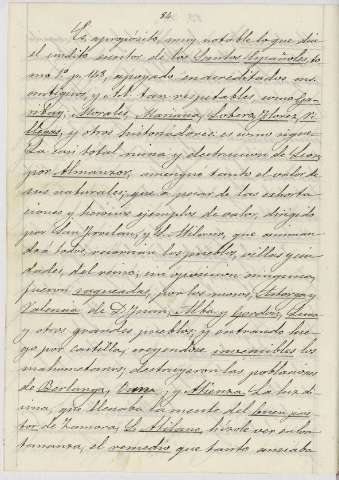 84.
Es, apropósito, muy notable lo que dice
el inédito escritor de los Santos Españoles, to
mo 1º p. 143, apoyado en acreditados ms.
antiguos, y tan respetables, como Gari
bay, Morales, Mariana, Lobera, Florez, Vi
llegas, y otros historiadores: es como sigue:
La casi total ruina y destruccion de Leon
por Almanzor, amenguo tanto el valor de
sus naturales; que a pesar de las exhorta
ciones y heroicos ejemplos de valor, dirigido
por San Froilán, y S. Atilano, que animan
do á todos, recorrian los pueblos, villas y ciu
dades, del reino, sin oposicion ninguna,
fueron saqueadas, por los moros, Astorga y
Valencia de D. Juan, Alba y Gordón, Luna
y otros grandes pueblos, y entrando lue
go por Castilla, creyendose invencibles los
mahometanos, destruyeron las poblaciones
de Berlanga, Osma, y Atienza. La luz di
vina, que llenaba la mente del buen pas
tor de Zamora, S. Atilano, hizole ver en lon
tananza, el remedio, que tanto ansiaba